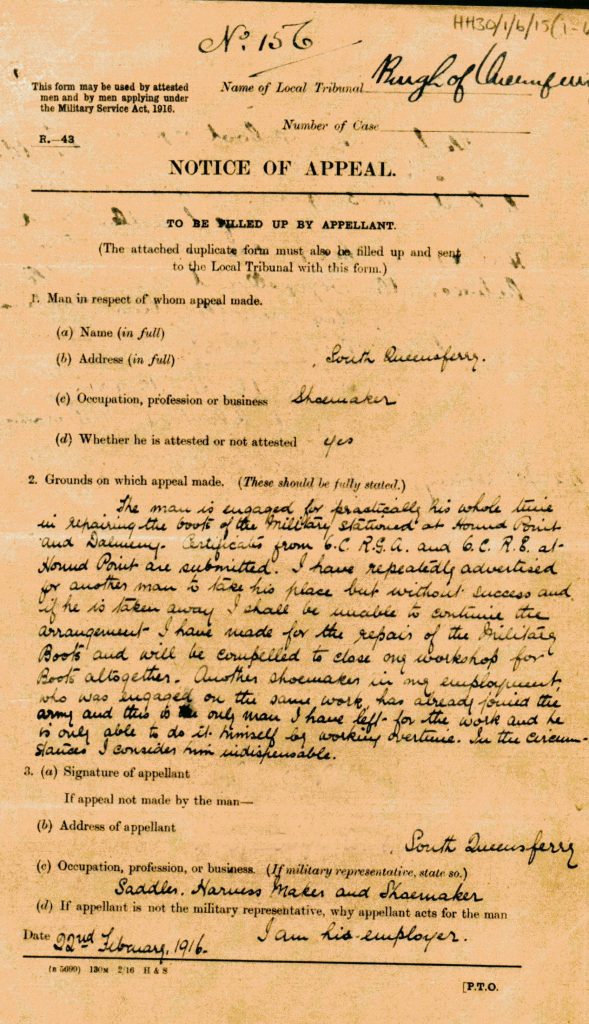 HH30/1/6/15 (1-
No. 156
This form may be used by attested
men and by men applying under
the Military Service Act, 1916.
Name of Local Tribunal Burgh of Queensferr
Number of Case
R.—43
NOTICE OF APPEAL.
TO BE FILLED UP BY APPELLANT.
(The attached duplicate form must also be filled up and sent
to the Local Tribunal with this form.)
1. Man in respect of whom appeal made.
(a) Name (in full)
(b) Address (in full) South Queensferry.
(c) Occupation, profession or business Shoemaker
(d) Whether he is attested or not attested yes
2. Grounds on which appeal made. (These should be fully stated.)
The man is engaged for practically his whole time
in repairing the boots of the Military stationed at Hound Point
and Dalmeny. Certificates from O.C. R.G.A. and O.C. R.E. at
Hound Point are submitted. I have repeatedly advertised
for another man to take his place but without success and
if he is taken away I shall be unable to continue the
arrangement I have made for the repair of the Military
Boots and will be compelled to close my workshop for
Boots altogether. Another shoemaker in my employment
who was engaged on the same work has already joined the
army and this is the only man I have left for the work and he
is only able to do it himself by working overtime. In the circum-
stances I consider him indispensable.
3. (a) Signature of appellant
If appeal not made by the man—
(b) Address of appellant
South Queensferry
(c) Occupation, profession, or business. (If military representative, state so.)
Saddler, Harness Maker and Shoemaker
(d) If appellant is not the military representative, why appellant acts for the man
I am his employer.
Date 22nd February, 1916.
(B 5699) 130M 2/16 H & S
[P.T.O.